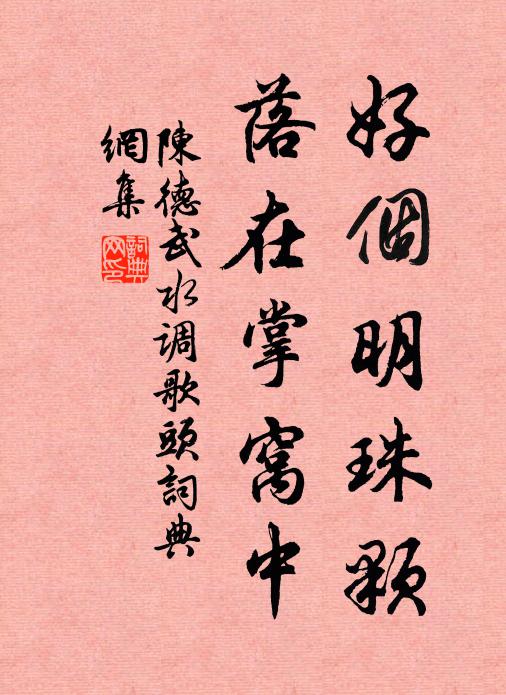 好個明珠顆
落在掌窩中
陳德武水调歌頭詞典
網集
詞典網印